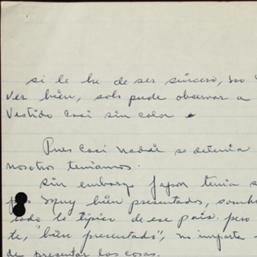 si le he de ser sincero, no
ver bién, solo pude observar a
Vestido casi sin color e
Pues casi nadie se detenia
nosotros teniamos.
Sin embargo Japon tenia s
muy bién presentados, sombr
todo lo típico de ese país, pero
te, "bién presentado", no importa
de presentar las cosas.